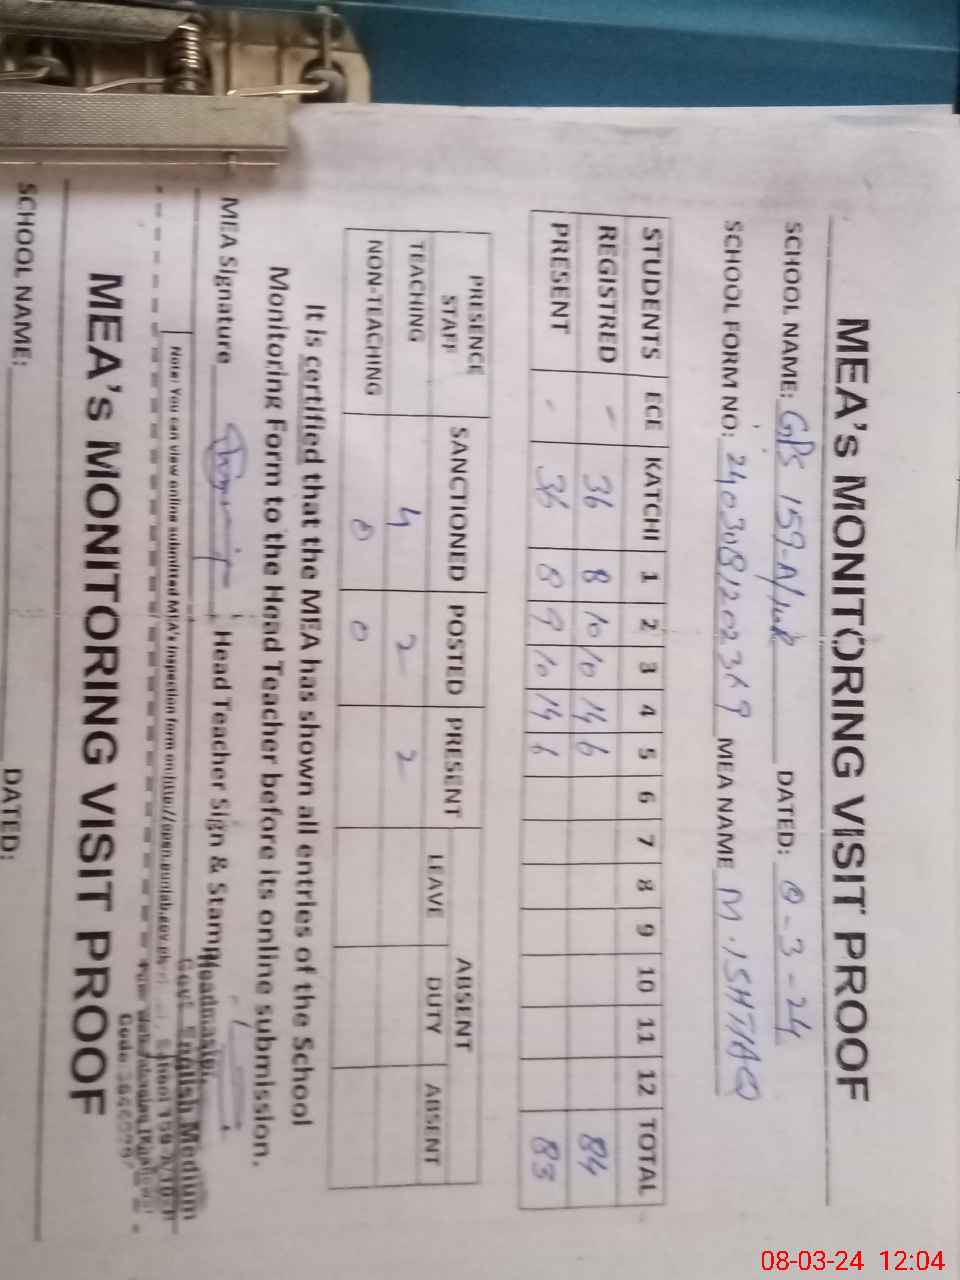 MEA's MONITORING VISIT PROOF
SCHOOL NAME: GPS 159-A/10R DATED: 8-3-24
SCHOOL FORM NO: MEA NAME M. ISHTIAQ
STUDENTS ECE KATCHI 1 2 3 4 5 6 7 8 9 10 11 12 TOTAL
REGISTRED - 36 8 10 10 14 6 84
PRESENT - 36 8 9 10 14 6 83
PRESENCE STAFF SANCTIONED POSTED PRESENT ABSENT
LEAVE DUTY ABSENT
TEACHING 4 2 2
NON-TEACHING 0 0
It is certified that the MEA has shown all entries of the School
Monitoring Form to the Head Teacher before its online submission.
MEA Signature Head Teacher Sign & Stamp
Headmaster
Govt. English Medium
School 159-A/10-R
Note: You can view online submitted MEA's inspection form on http://open.punjab.gov.pk
Code
MEA's MONITORING VISIT PROOF
SCHOOL NAME: DATED:
08-03-24 12:04